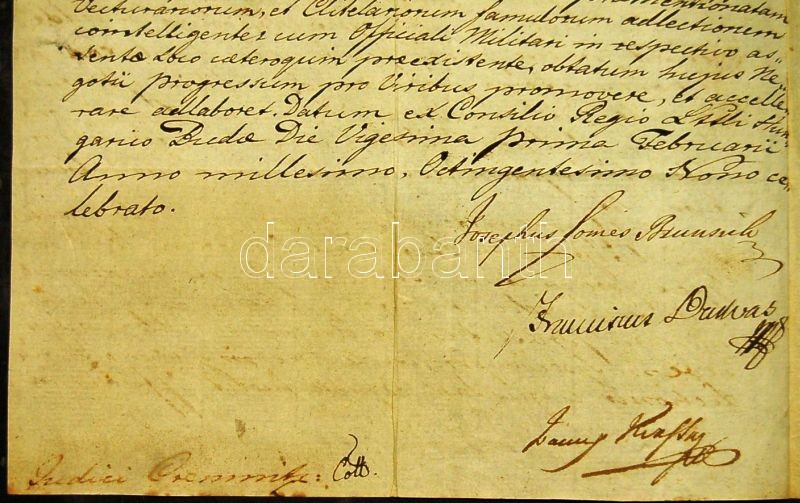 Vecturariorum, et Clitelariorum famulorum adlectionem
cointelligenter cum Officiali Militari in respectivo as„
sentæ Loco cæteroquin præexistente, obtatum hujus Ne„
gotii progressum pro Viribus promovere, et accelle„
rare adlaboret. Datum ex Consilio Regio Lttli Hun„
garico Budæ Die Vigesima prima Februarii
Anno millesimo, Octingentesimo Nono ce„
lebrato.
Josephus Comes Brunsvik
Franciscus
Judici :
Cott.
darabanth